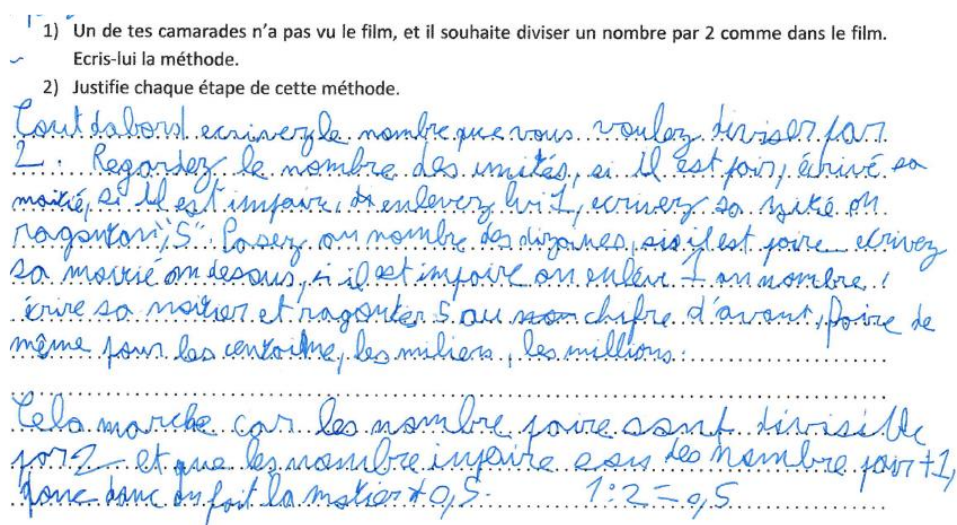 1) Un de tes camarades n'a pas vu le film, et il souhaite diviser un nombre par 2 comme dans le film.
Ecris-lui la méthode.
2) Justifie chaque étape de cette méthode.
Tout dabord ecriverz le nombre que vous voulez diviser par
2. Regardez le nombre des unités, si il est pair, écrivé sa
moitié, si il est impaire, enleverz lui 1, ecriverz sa on
ragoutant ",5". Pasez au nombre des dizaines, si il est paire ecrivez
sa moitié en dessous, si il est impaire on enlève 1 au nombre,
écrire sa moitier et ragouter 5 au chifre d'avant, faire de
même pour les centaine, les miliers, les millions.
Cela marche car les nombre paire sont divisible
par 2 et que les nombre impaire sous des nombre pair +1,
donc on fait la moitier + 0,5. 1:2=0,5